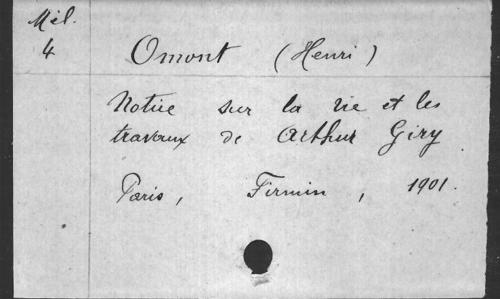 Mél.
4
Omont (Henri)
Notice sur la vie et les
travaux de Arthur Giry
Paris, Firmin, 1901.